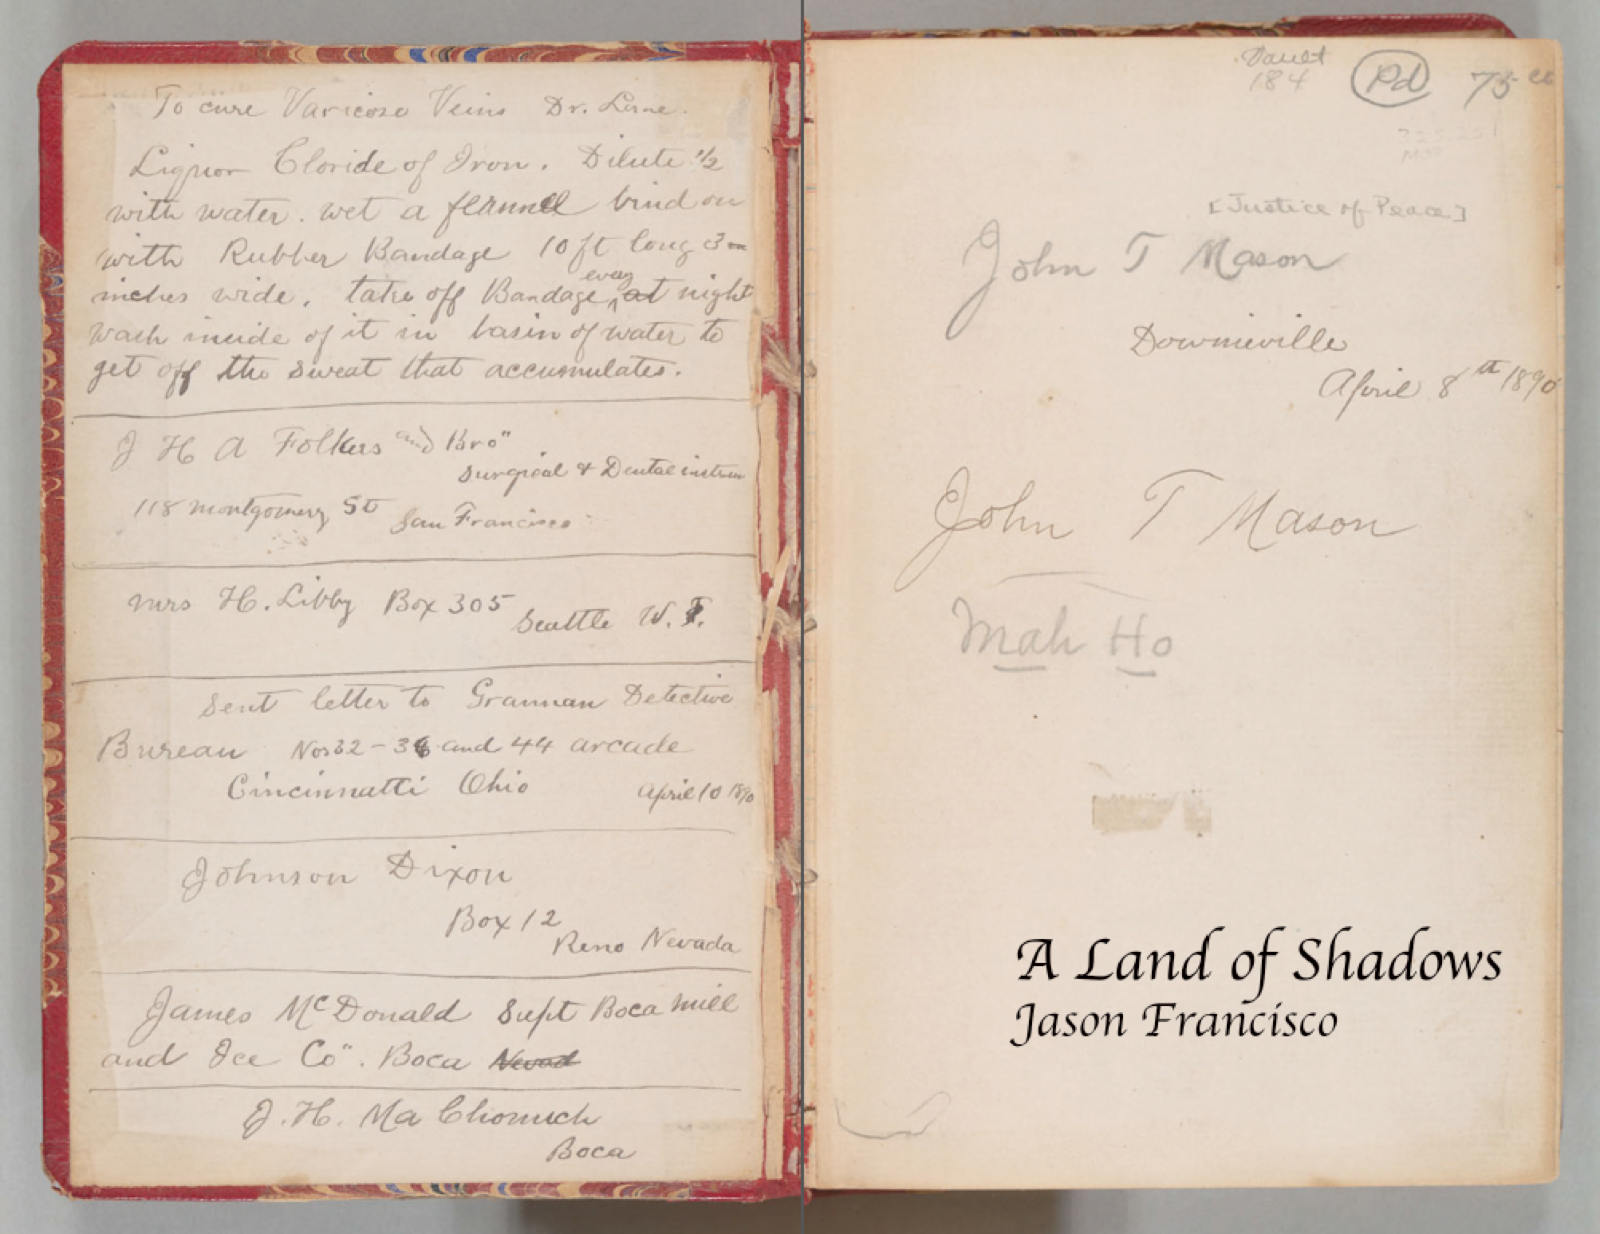 To cure Varicose Veins Dr. Lane.
Liquor Cloride of Iron. Dilute 1/2
with water. wet a flannel bind on
with Rubber Bandage 10 ft long 3
inches wide. take off Bandage every at night
wash inside of it in basin of water to
get off the sweat that accumulates.
J H A Folkers and Bro"
Surgical & Dental instrum
118 Montgomery St San Francisco
Mrs H. Libby Box 305
Seattle W. T.
Sent letter to Grannan Detective
Bureau Nos 32 - 36 and 44 arcade
Cincinnatti Ohio April 10 1890
Johnson Dixon
Box 12
Reno Nevada
James McDonald Supt Boca Mill
and Ice Co". Boca Nevad
J. H. Ma
Boca
Vault
184
Pd
75
[Justice of Peace]
John T Mason
Downieville
April 8th 1890
John T Mason
Mah Ho
A Land of Shadows
Jason Francisco